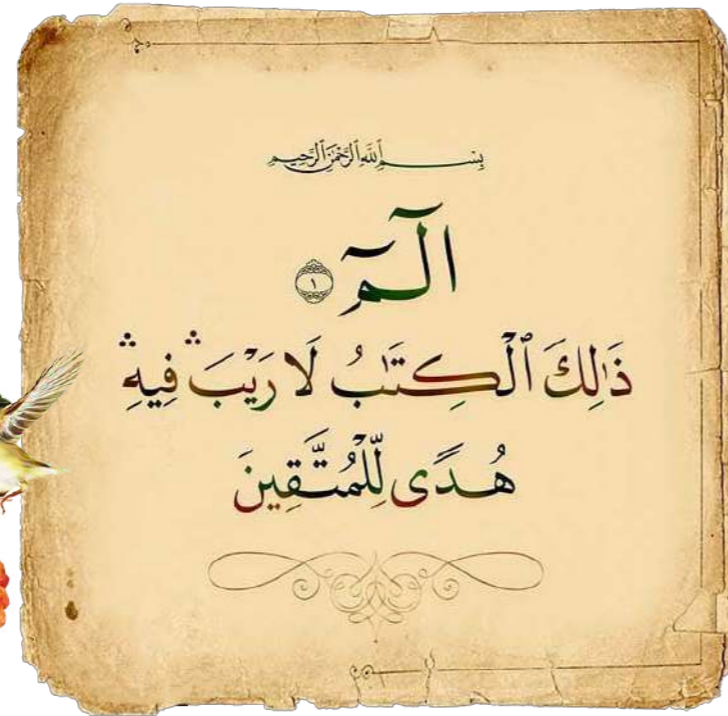 بِسْمِ ٱللَّهِ ٱلرَّحْمَٰنِ ٱلرَّحِيمِ
الٓمٓ ۝١
ذَٰلِكَ ٱلْكِتَٰبُ لَا رَيْبَ ۛ فِيهِ ۛ
هُدًى لِّلْمُتَّقِينَ